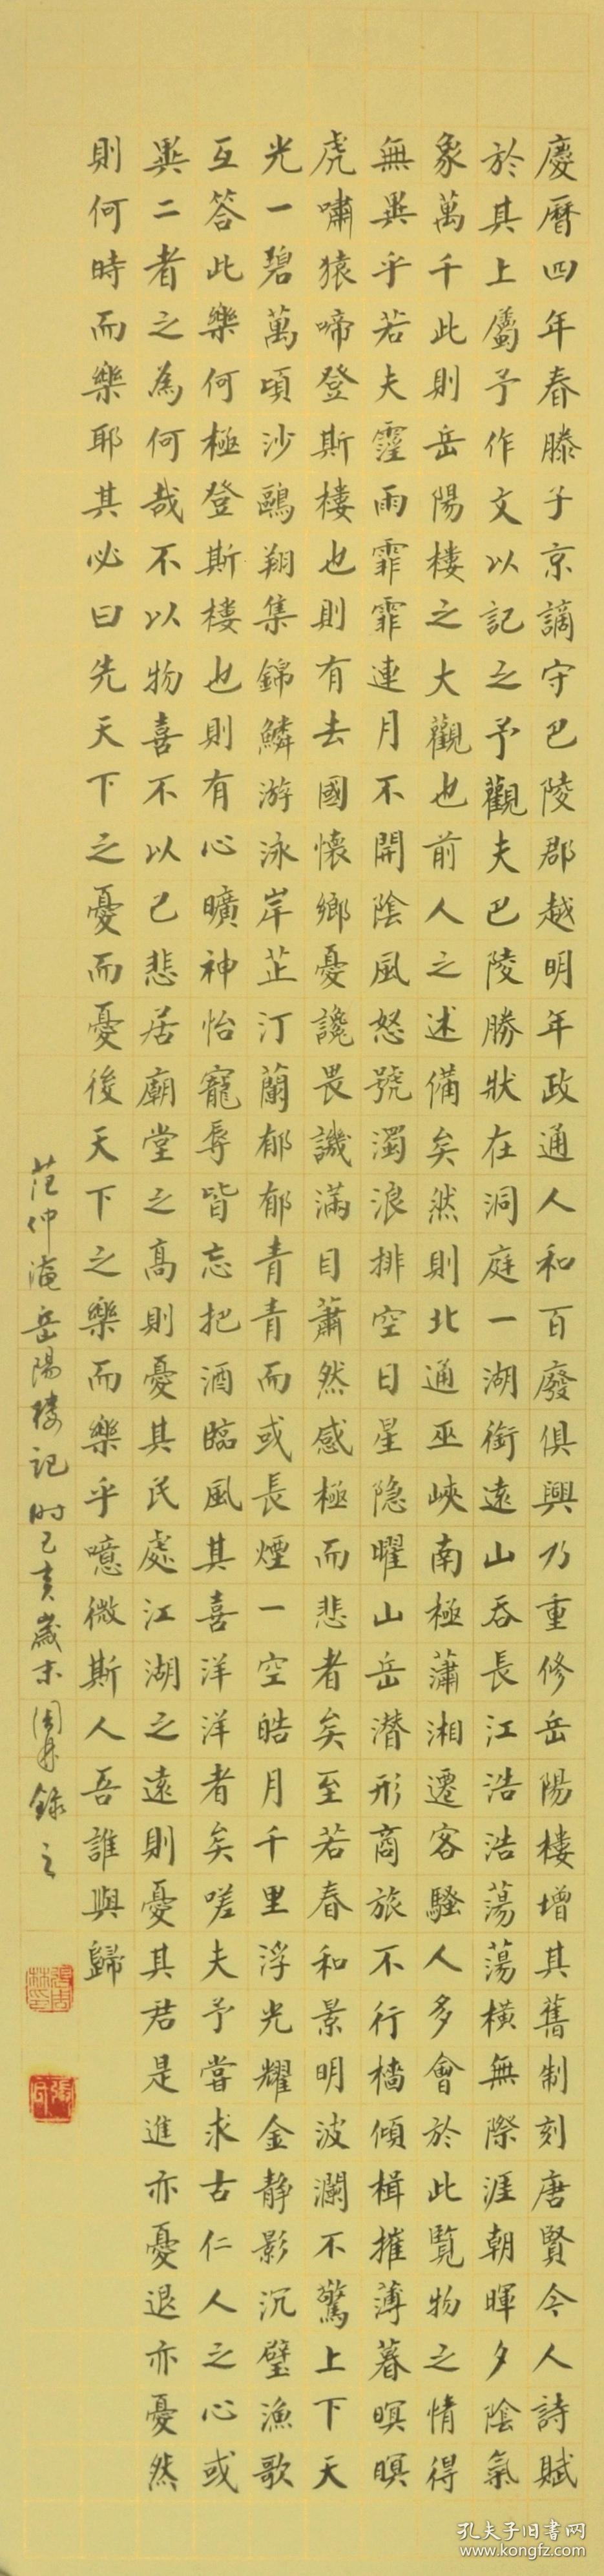 慶曆四年春滕子京謫守巴陵郡越明年政通人和百廢俱興乃重修岳陽樓增其舊制刻唐賢今人詩賦
於其上屬予作文以記之予觀夫巴陵勝狀在洞庭一湖銜遠山吞長江浩浩蕩蕩橫無際涯朝暉夕陰氣
象萬千此則岳陽樓之大觀也前人之述備矣然則北通巫峽南極瀟湘遷客騷人多會於此覽物之情得
無異乎若夫霪雨霏霏連月不開陰風怒號濁浪排空日星隐曜山岳潛形商旅不行檣傾楫摧薄暮暝暝
虎嘯猿啼登斯樓也則有去國懷鄉憂讒畏譏滿目蕭然感極而悲者矣至若春和景明波瀾不驚上下天
光一碧萬頃沙鷗翔集錦鱗游泳岸芷汀蘭郁郁青青而或長煙一空皓月千里浮光耀金静影沉璧漁歌
互答此樂何極登斯樓也則有心曠神怡寵辱皆忘把酒臨風其喜洋洋者矣嗟夫予嘗求古仁人之心或
異二者之為何哉不以物喜不以己悲居廟堂之高則憂其民處江湖之遠則憂其君是進亦憂退亦憂然
則何時而樂耶其必曰先天下之憂而憂後天下之樂而樂乎噫微斯人吾誰與歸
范仲淹岳陽樓記時己亥歲末錄之
孔夫子旧書网
www.kongfz.com